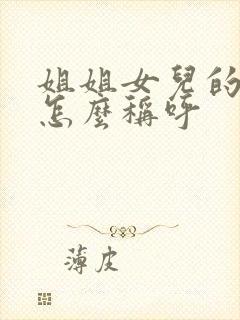 姐姐女兒的
怎麼稱呼
薄皮